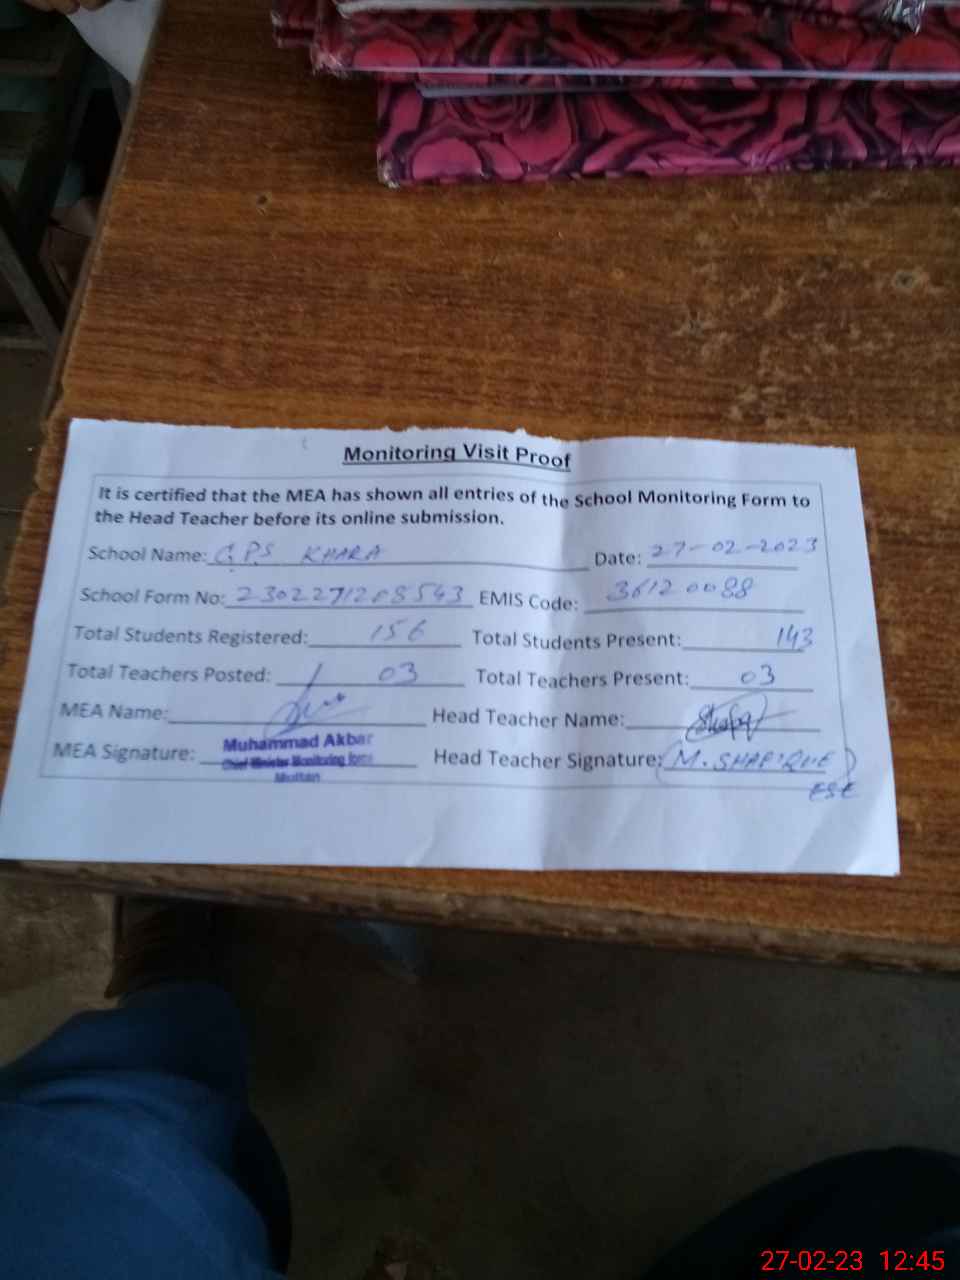 Monitoring Visit Proof
It is certified that the MEA has shown all entries of the School Monitoring Form to
the Head Teacher before its online submission.
School Name: G.P.S KHARA Date: 27-02-2023
School Form No: EMIS Code: 36120088
Total Students Registered: 156 Total Students Present: 143
Total Teachers Posted: 03 Total Teachers Present: 03
MEA Name: Head Teacher Name:
Muhammad Akbar
MEA Signature: Chief Minister Monitoring force Head Teacher Signature: M. SHAFIQUE
Multan
ESE
27-02-23 12:45